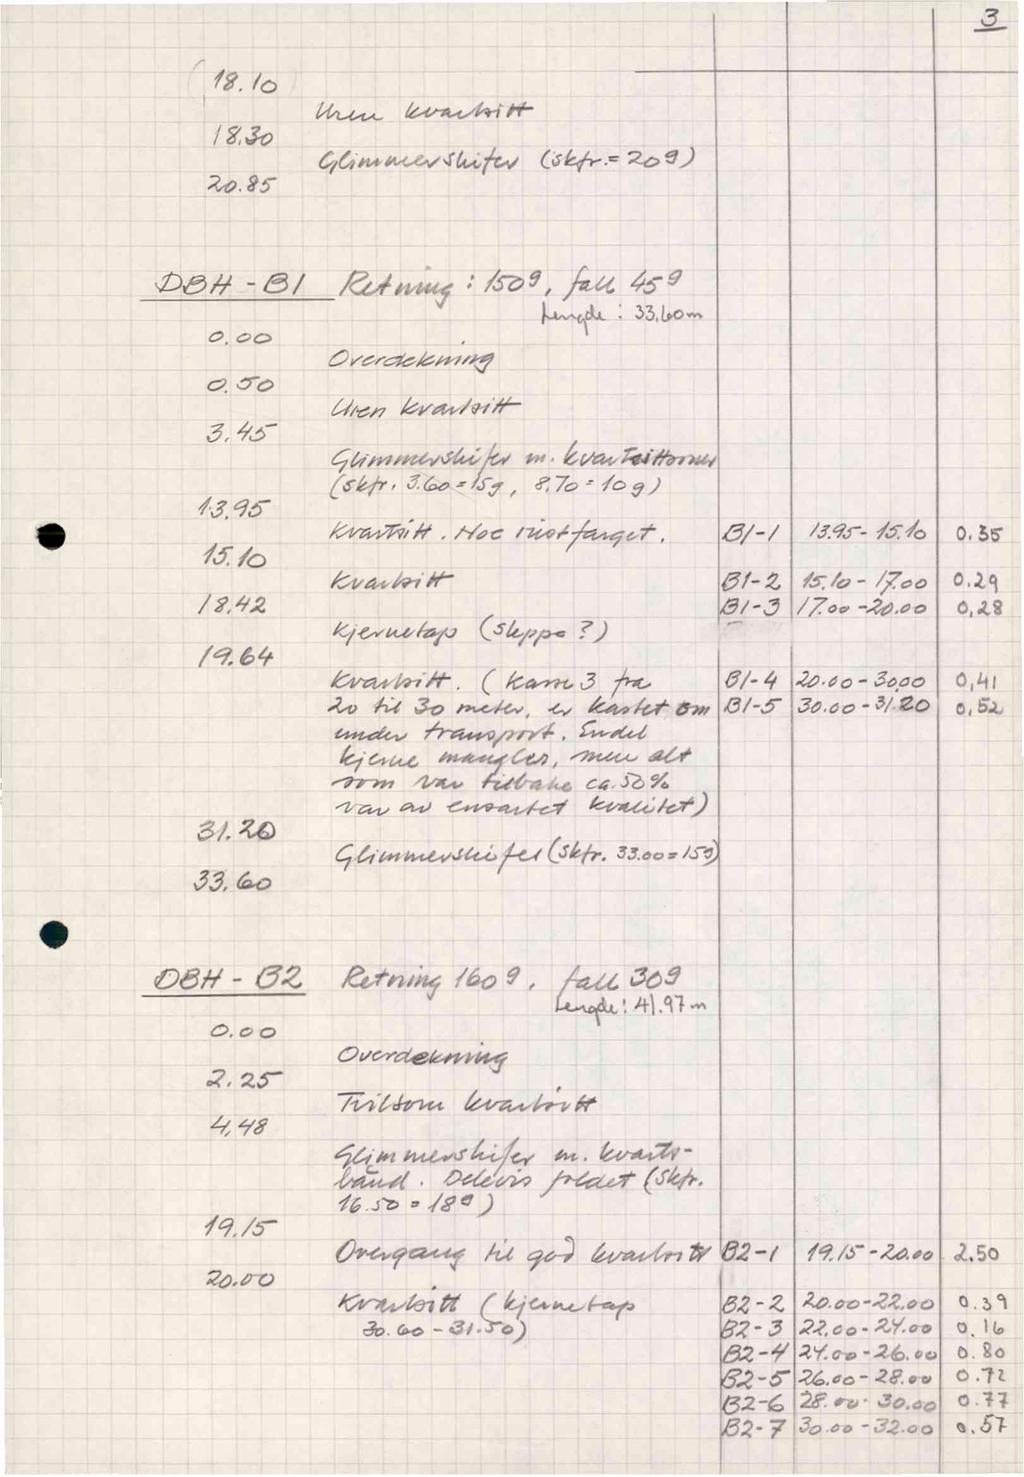 3
18.10
Uren kvartsitt
18.30
Glimmerskifer (skfr. = 20g)
20.85
DBH - B1 Retning : 150g, fall 45g
Lengde : 33.60m
0.00
Overdekning
0.50
Uren kvartsitt
3.45
Glimmerskifer m. kvartsittsoner
(skfr. 3.60 = 15g, 8.70 = 10g)
13.95
Kvartsitt. Noe rustfarget. B1-1 13.95 - 15.10 0.35
15.10
Kvartsitt B1-2 15.10 - 17.00 0.29
18.42 B1-3 17.00 - 20.00 0,28
Kjernetap (Sleppe ?)
19.64
Kvartsitt. (Kasse 3 fra B1-4 20.00 - 30.00 0,41
20 til 30 meter, er kastet om B1-5 30.00 - 31.20 0,52
under transport. Endel
kjerne mangler, men alt
som var tilbake ca. 50%
var av ensartet kvalitet)
31.20
Glimmerskifer (Skfr. 33.00 = 15g)
33.60
DBH - B2 Retning 160g, fall 30g
Lengde : 41.97 m
0.00
Overdekning
2.25
Tvilsom kvartsitt
4,48
Glimmerskifer m. kvarts-
bånd. Delevis foldet (Skfr.
16.50 = 18g)
19.15
Overgang til god kvartsitt B2-1 19.15 - 20.00 2.50
20.00
Kvartsitt (kjernetap B2-2 20.00-22.00 0.39
30.60 - 31.50) B2-3 22.00-24.00 0.16
B2-4 24.00-26.00 0.80
B2-5 26.00-28.00 0.72
B2-6 28.00-30.00 0.77
B2-7 30.00-32.00 0.57